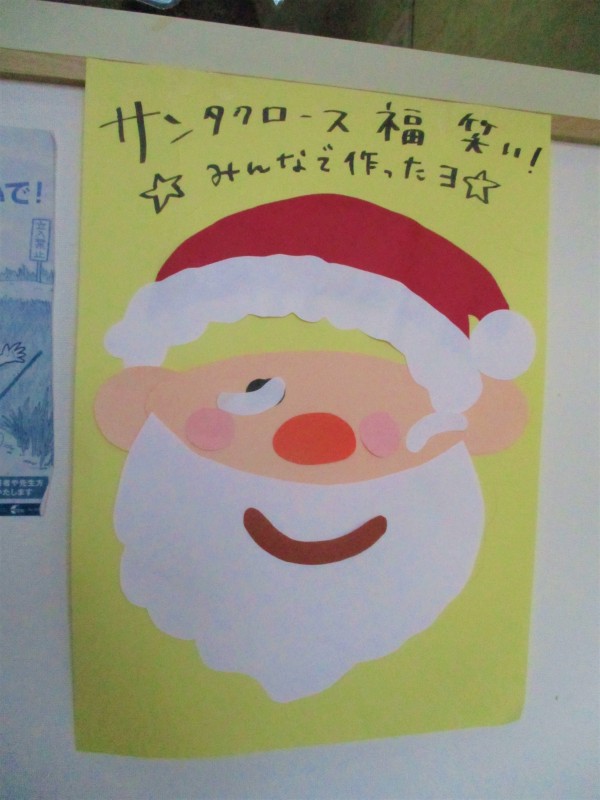 サンタクロース 福 笑い!
☆ みんなで作ったヨ☆
で!